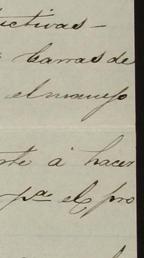 uctivas-
barras de
el manejo
rte á hacer
pª el pro